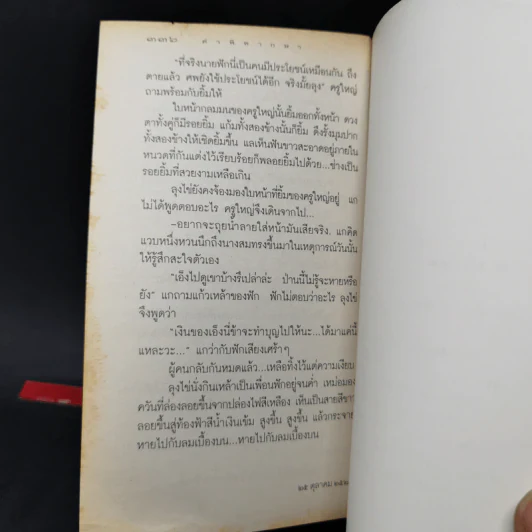 ๓๓๒ คำพิพากษา
"ที่จริงนายฟักนี่เป็นคนมีประโยชน์เหมือนกัน ถึง
ตายแล้ว ศพยังใช้ประโยชน์ได้อีก จริงมั้ยลุง" ครูใหญ่
ถามพร้อมกับยิ้มให้
ใบหน้ากลมมนของครูใหญ่นั้นยิ้มออกทั้งหน้า ดวง
ตาทั้งคู่ก็มีรอยยิ้ม แก้มทั้งสองข้างนั้นก็ยิ้ม ดึงรั้งมุมปาก
ทั้งสองข้างให้เชิดยิ้มขึ้น แลเห็นฟันขาวสะอาดอยู่ภายใน
หนวดที่กันแต่งไว้เรียบร้อยก็พลอยยิ้มไปด้วย...ช่างเป็น
รอยยิ้มที่สวยงามเหลือเกิน
ลุงไข่ยังคงจ้องมองใบหน้าที่ยิ้มของครูใหญ่อยู่ แก
ไม่ได้พูดตอบอะไร ครูใหญ่จึงเดินจากไป...
–อยากจะถุยน้ำลายใส่หน้ามันเสียจริง. แกคิด
แวบหนึ่งหวนนึกถึงนางสมทรงขึ้นมาในเหตุการณ์วันนั้น
ให้รู้สึกสะใจตัวเอง
"เอ็งไปดูเขาบ้างรึเปล่าล่ะ ป่านนี้ไม่รู้จะหายหรือ
ยัง" แกถามแก้วเหล้าของฟัก ฟักไม่ตอบว่าอะไร ลุงไข่
จึงพูดว่า
"เงินของเอ็งนี่ข้าจะทำบุญไปให้นะ...ได้มาแค่นี้
แหละวะ..." แกว่ากับฟักเสียงเศร้าๆ
ผู้คนกลับกันหมดแล้ว...เหลือทิ้งไว้แต่ความเงียบ
ลุงไข่นั่งกินเหล้าเป็นเพื่อนฟักอยู่จนค่ำ เหม่อมอง
ควันที่ล่องลอยขึ้นจากปล่องไฟสีเหลือง เห็นเป็นสายสีขาว
ลอยขึ้นสู่ท้องฟ้าสีน้ำเงินเข้ม สูงขึ้น สูงขึ้น แล้วกระจาย
หายไปกับลมเบื้องบน...หายไปกับลมเบื้องบน
๒๕ ตุลาคม